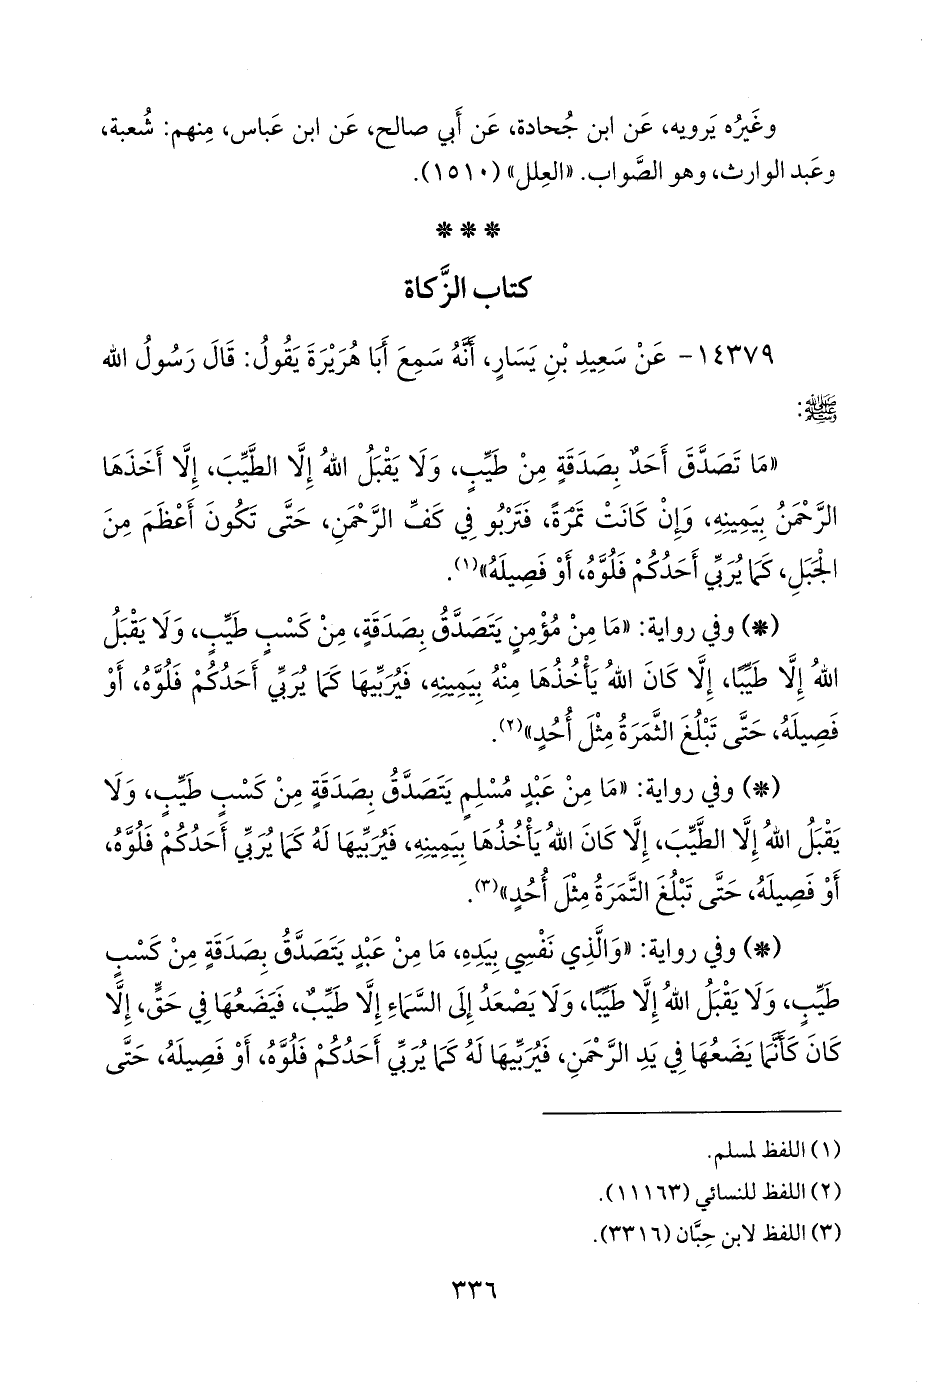 وغَيرُه يَرويه، عَن ابن جُحادة، عَن أَبي صالح، عَن ابن عَباس، مِنهم: شُعبة،
وعَبد الوارث، وهو الصَّواب. «العِلل» (١٥١٠).
* * *
كتاب الزَّكاة
١٤٣٧٩- عَنْ سَعِيدِ بْنِ يَسَارٍ، أَنَّهُ سَمِعَ أَبَا هُرَيْرَةَ يَقُولُ: قَالَ رَسُولُ الله
ﷺ:
«مَا تَصَدَّقَ أَحَدٌ بِصَدَقَةٍ مِنْ طَيِّبٍ، وَلَا يَقْبَلُ اللهُ إِلَّا الطَّيِّبَ، إِلَّا أَخَذَهَا
الرَّحْمَنُ بِيَمِينِهِ، وَإِنْ كَانَتْ تَمْرَةً، فَتَرْبُو فِي كَفِّ الرَّحْمَنِ، حَتَّى تَكُونَ أَعْظَمَ مِنَ
الْجَبَلِ، كَمَا يُرَبِّي أَحَدُكُمْ فَلُوَّهُ، أَوْ فَصِيلَهُ»(١).
(*) وفي رواية: «مَا مِنْ مُؤْمِنٍ يَتَصَدَّقُ بِصَدَقَةٍ، مِنْ كَسْبٍ طَيِّبٍ، وَلَا يَقْبَلُ
اللهُ إِلَّا طَيِّبًا، إِلَّا كَانَ اللهُ يَأْخُذُهَا مِنْهُ بِيَمِينِهِ، فَيُرَبِّيهَا كَمَا يُرَبِّي أَحَدُكُمْ فَلُوَّهُ، أَوْ
فَصِيلَهُ، حَتَّى تَبْلُغَ الثَّمَرَةُ مِثْلَ أُحُدٍ»(٢).
(*) وفي رواية: «مَا مِنْ عَبْدٍ مُسْلِمٍ يَتَصَدَّقُ بِصَدَقَةٍ مِنْ كَسْبٍ طَيِّبٍ، وَلَا
يَقْبَلُ اللهُ إِلَّا الطَّيِّبَ، إِلَّا كَانَ اللهُ يَأْخُذُهَا بِيَمِينِهِ، فَيُرَبِّيهَا لَهُ كَمَا يُرَبِّي أَحَدُكُمْ فَلُوَّهُ،
أَوْ فَصِيلَهُ، حَتَّى تَبْلُغَ التَّمَرَةُ مِثْلَ أُحُدٍ»(٣).
(*) وفي رواية: «وَالَّذِي نَفْسِي بِيَدِهِ، مَا مِنْ عَبْدٍ يَتَصَدَّقُ بِصَدَقَةٍ مِنْ كَسْبٍ
طَيِّبٍ، وَلَا يَقْبَلُ اللهُ إِلَّا طَيِّبًا، وَلَا يَصْعَدُ إِلَى السَّمَاءِ إِلَّا طَيِّبٌ، فَيَضَعُهَا فِي حَقٍّ، إِلَّا
كَانَ كَأَنَّمَا يَضَعُهَا فِي يَدِ الرَّحْمَنِ، فَيُرَبِّيهَا لَهُ كَمَا يُرَبِّي أَحَدُكُمْ فَلُوَّهُ، أَوْ فَصِيلَهُ، حَتَّى
(١) اللفظ لمسلم.
(٢) اللفظ للنسائي (١١١٦٣).
(٣) اللفظ لابن حِبَّان (٣٣١٦).
٣٣٦